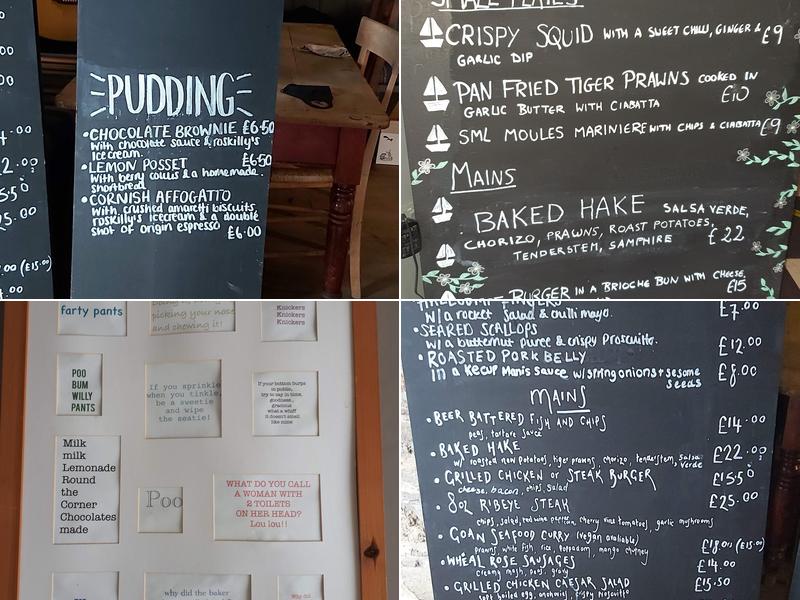 PUDDING
• CHOCOLATE BROWNIE £6.50
with chocolate sauce & roskilly's
Icecream.
• LEMON POSSET £6.50
with berry coulis & a homemade
shortbread
• CORNISH AFFOGATTO
with crushed amaretti biscuits,
roskilly's icecream & a double
shot of origin espresso
£6.00
SMALL PLATES
CRISPY SQUID WITH A SWEET CHILLI, GINGER & £9
GARLIC DIP
PAN FRIED TIGER PRAWNS COOKED IN
GARLIC BUTTER WITH CIABATTA £10
SML MOULES MARINIERE WITH CHIPS & CIABATTA £9
MAINS
BAKED HAKE SALSA VERDE,
CHORIZO, PRAWNS, ROAST POTATOES,
TENDERSTEM, SAMPHIRE £22
BURGER IN A BRIOCHE BUN WITH CHEESE,
£15
farty pants
picking your nose
and chewing it!
Knickers
Knickers
Knickers
POO
BUM
WILLY
PANTS
If you sprinkle
when you tinkle,
be a sweetie
and wipe
the seatie!
If your bottom burps
in public,
try to say in time,
goodness,
gracious
what a whiff
it doesn't smell
like mine
Milk
milk
Lemonade
Round
the
Corner
Chocolates
made
Poo
WHAT DO YOU CALL
A WOMAN WITH
2 TOILETS
ON HER HEAD?
Lou lou!!
why did the baker
Why did
w/a rocket salad & chilli mayo. £7.00
• SEARED SCALLOPS
w/a butternut puree & crispy Proscuitto. £12.00
• ROASTED PORK BELLY
In a Kecup Manis sauce w/spring onions + sesome
seeds £8.00
MAINS
• BEER BATTERED FISH AND CHIPS £14.00
peas, tartare sauce
• BAKED HAKE £22.00
w/ roasted new potatoes, tiger prawns, chorizo, tenderstem, Salsa
verde
• GRILLED CHICKEN or STEAK BURGER £15.50
cheese, bacon, chips, salad
• 8oz RIBEYE STEAK £25.00
chips, salad, cherry vine tomatoes, garlic mushrooms
• GOAN SEAFOOD CURRY (vegan available)
prawns, white fish, rice, poppadom, mango chutney £18.00 (£15.00)
• WHEAL ROSE SAUSAGES £14.00
creamy mash, peas, gravy
• GRILLED CHICKEN CAESAR SALAD £15.50
soft boiled egg, anchovies, crispy proscuitto